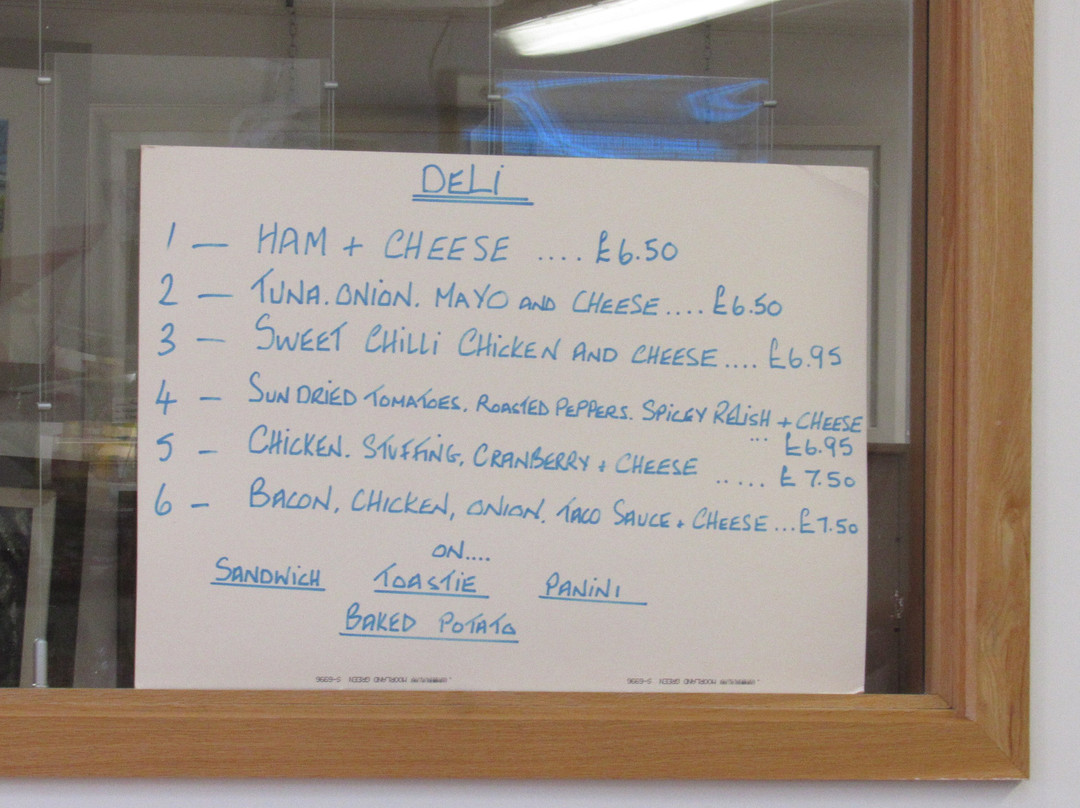 DELi
1 - HAM + CHEESE .... £6.50
2 - TUNA. ONION. MAYO AND CHEESE .... £6.50
3 - SWEET CHILLI CHICKEN AND CHEESE .... £6.95
4 - SUN DRIED TOMATOES. ROASTED PEPPERS. SPICEY RELISH + CHEESE
... £6.95
5 - CHICKEN. STUFFING, CRANBERRY + CHEESE ..... £7.50
6 - BACON, CHICKEN, ONION. TACO SAUCE + CHEESE ... £7.50
ON....
SANDWICH TOASTIE PANINI
BAKED POTATO
MOORLAND GREEN S-6996 MOORLAND GREEN S-6996